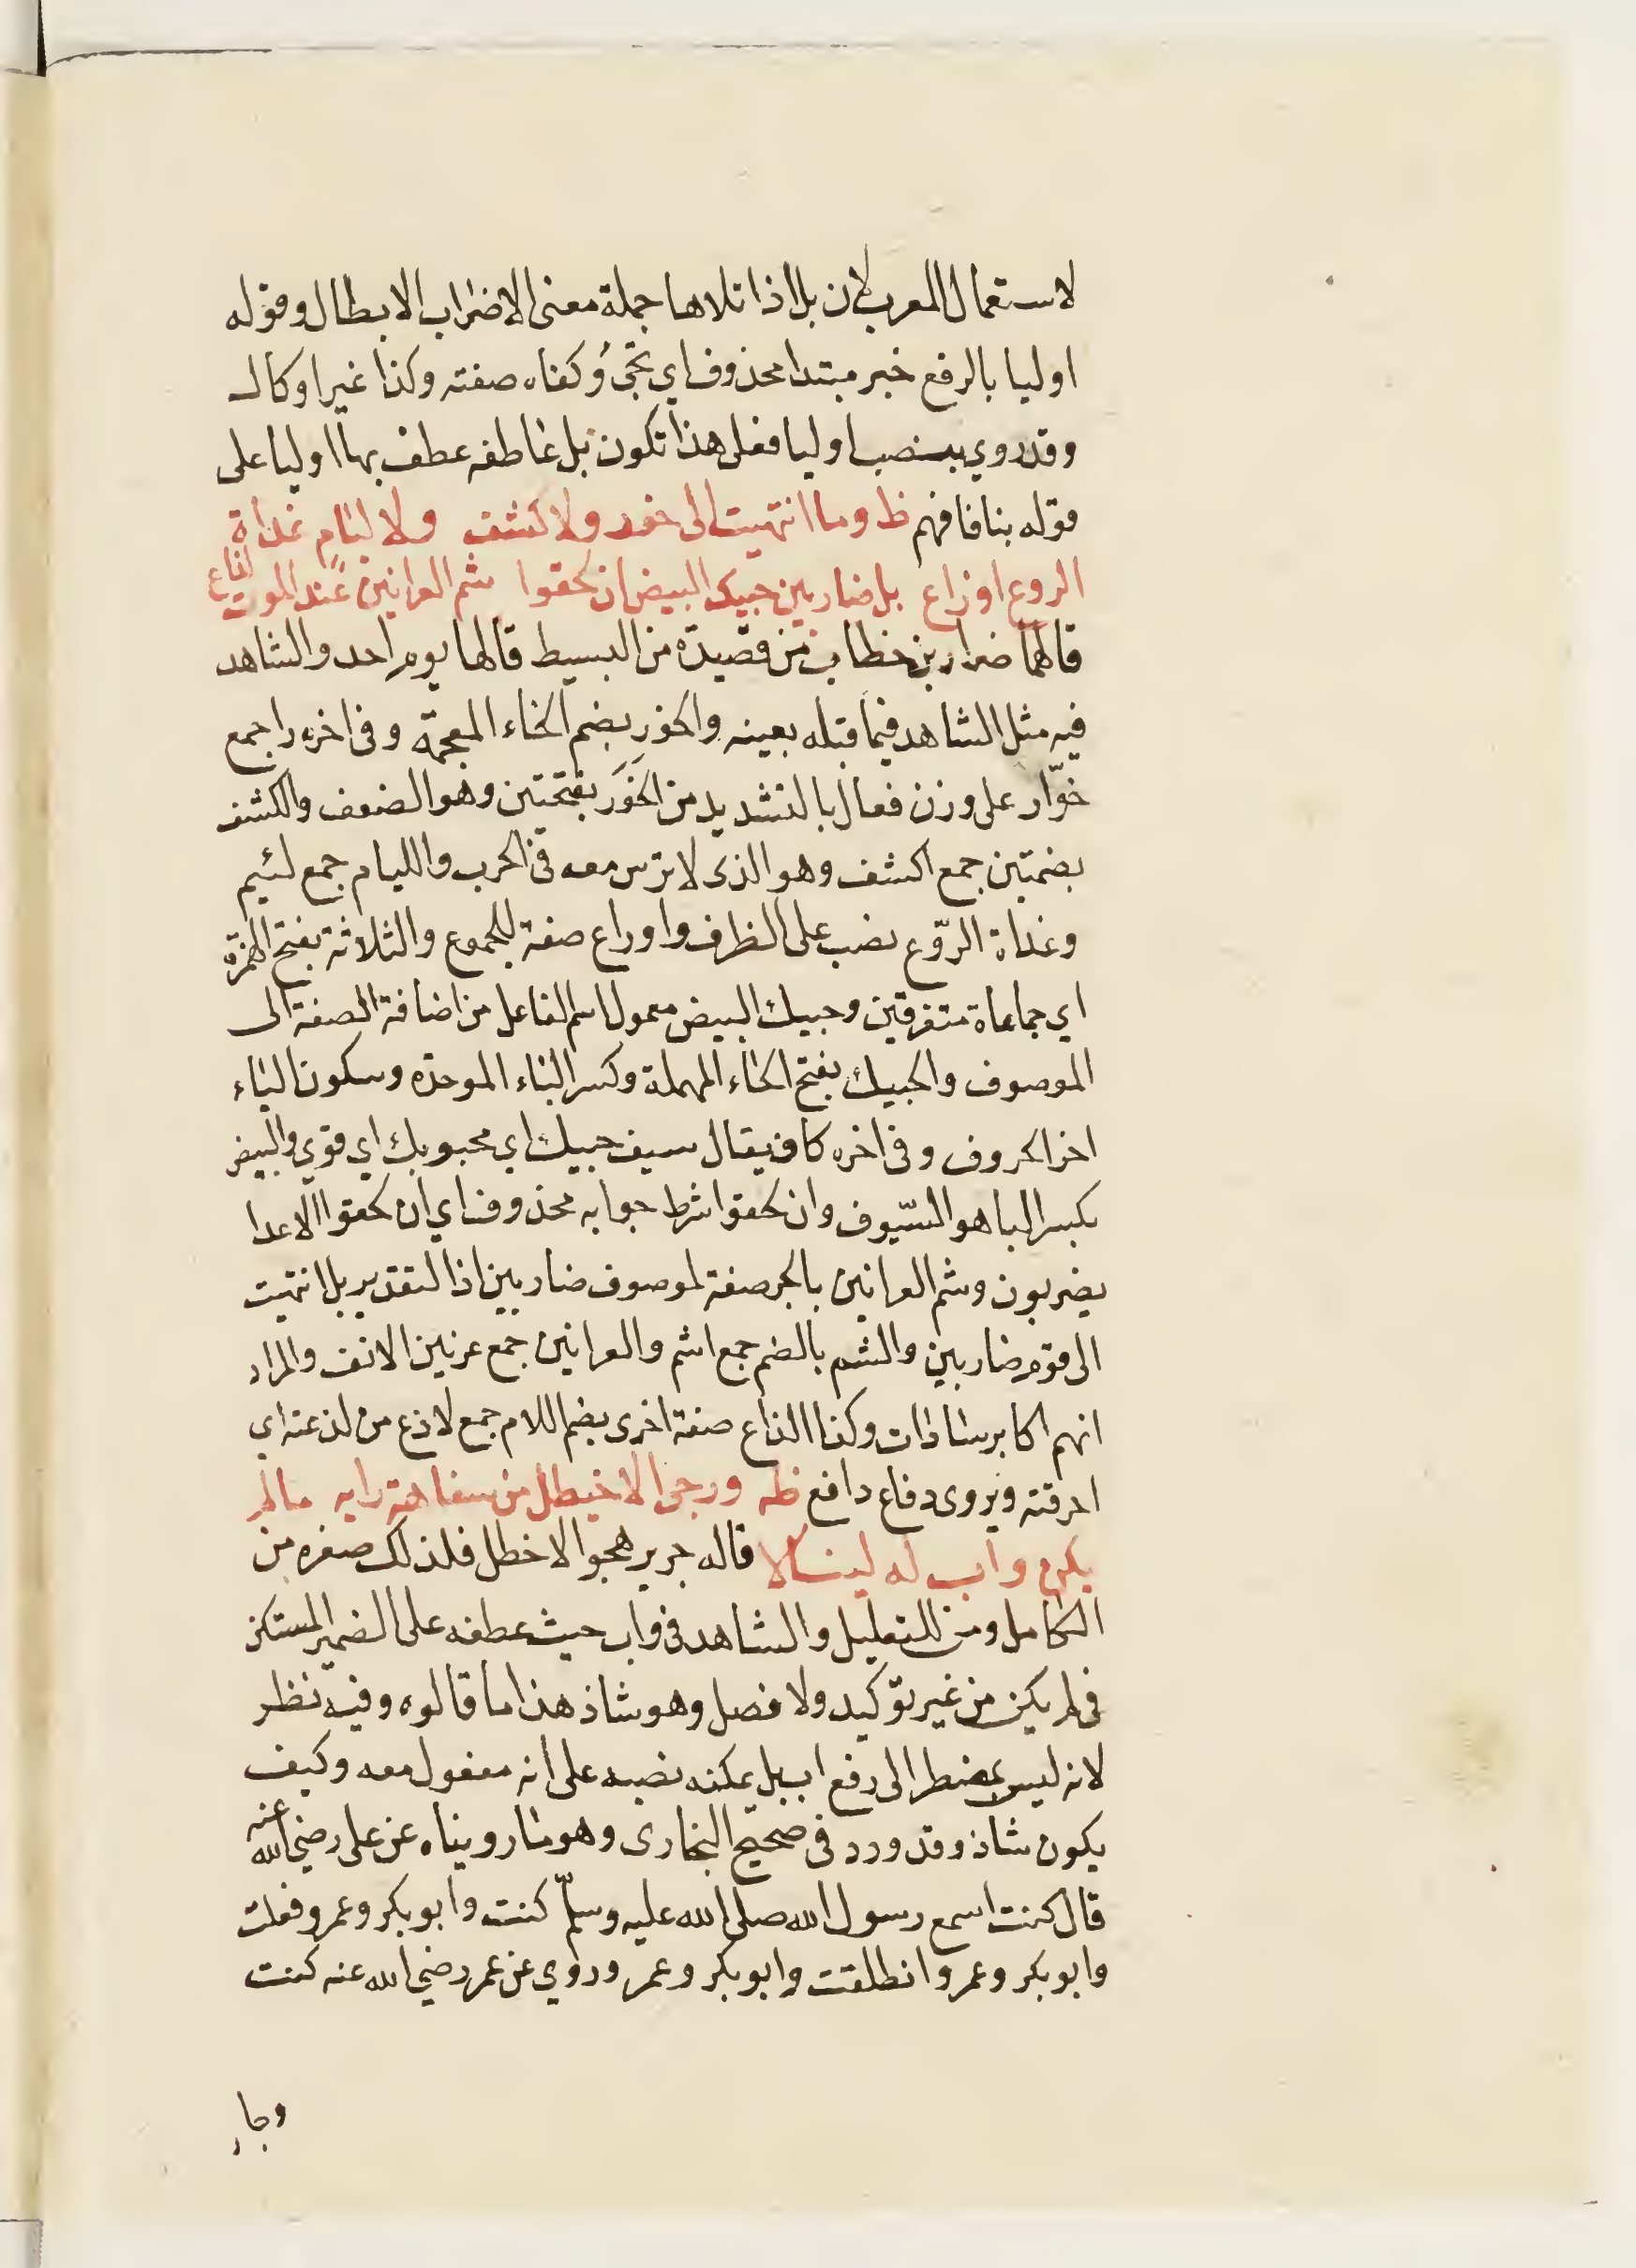 لاستعمال العرب لان بل اذا تلاها جملة معنى الاضراب الابطال وقوله
اوليا بالرفع خبر مبتدا محذوف اي نحن وكفاه صفته وكذا غيرا وكال
وقد روي بنصب اوليا فعلى هذا تكون بل عاطفه عطف بها اوليا على
قوله بنا فافهم ظ وما انتهيت الى خور ولا كشف ولا لئام غداة
الروع اوزاع بل ضاربين حبيك البيض ان لحقوا شم العرانين عند الموت لذاع
قالهما ضرار بن خطاب من قصيدة من البسيط قالها يوم احد والشاهد
فيه مثل الشاهد فيما قبله بعينه والخور بضم الخاء المعجمة وفى اخره را جمع
خوّار على وزن فعال بالتشديد من الخَوَر بفتحتين وهو الضعف والكشف
بضمتين جمع اكشف وهو الذى لا ترس معه فى الحرب والليام جمع لئيم
وغداة الروّع نصب على الظرف واوراع صفة للجموع والثلاثة بفتح الهمزة
اي جماعاة متفرقين وحبيك البيض معمول اسم الفاعل من اضافة الصفة الى
الموصوف والحبيك بفتح الحاء المهملة وكسر الباء الموحدة وسكون الياء
اخر الحروف وفى اخره كاف يقال سيف حبيك اي محبوبك اي قوي والبيض
بكسر البا هو السّيوف وان لحقوا شرط جوابه محذوف اي ان لحقوا الاعدا
يضربون وشم العرانين بالجر صفة لموصوف ضاربين اذ التقدير بل انتهيت
الى قوم ضاربين والشم بالضم جمع اشم والعرانين جمع عرنين الانف والمراد
انهم اكابر سادات وكذا الذاع صفة اخرى بضم اللام جمع لاذع من لذعته اي
احرقته ويروى دفاع دافع ظه ورجى الاخيطل من سفاهة رايه مالم
يكن واب له لينالا قاله جرير هجوا الاخطل فلذلك صغره من
الكامل ومن للتعليل والشاهد فى واب حيث عطفه على الضمير المستكن
فى لم يكن من غير توكيد ولا فصل وهو شاذ هذا ما قالوه وفيه نظر
لانه ليس بمضطر الى رفع اب بل يمكنه نصبه على انه مفعول معه وكيف
يكون شاذ وقد ورد فى صحيح البخارى وهو ما رويناه عن على رضي الله عنه
قال كنت اسمع رسول الله صلى الله عليه وسلّم كنت وابو بكر وعمر وفعلت
وابو بكر وعمر وانطلقت وابو بكر وعمر وروي عن عمر رضي الله عنه كنت
وجار